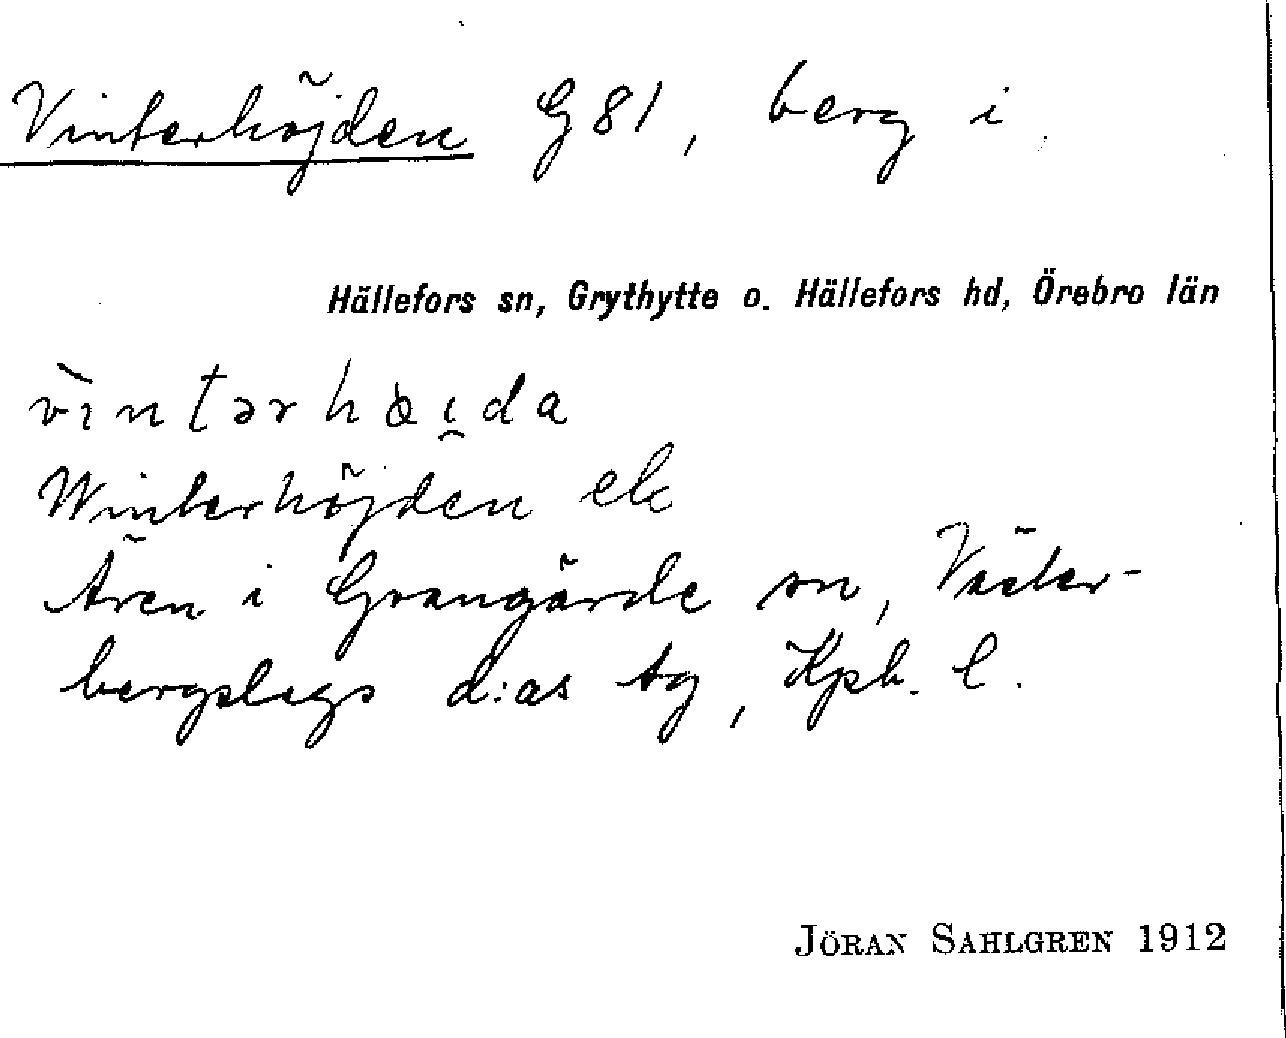 Vinterhöjden G 81, berg i
Hällefors sn, Grythytte o. Hällefors hd, Örebro län
Winterhöjden ek
Även i Grangärde sn, Väster-
bergslags d:as tg, Kpb. l.
JÖRAN SAHLGREN 1912